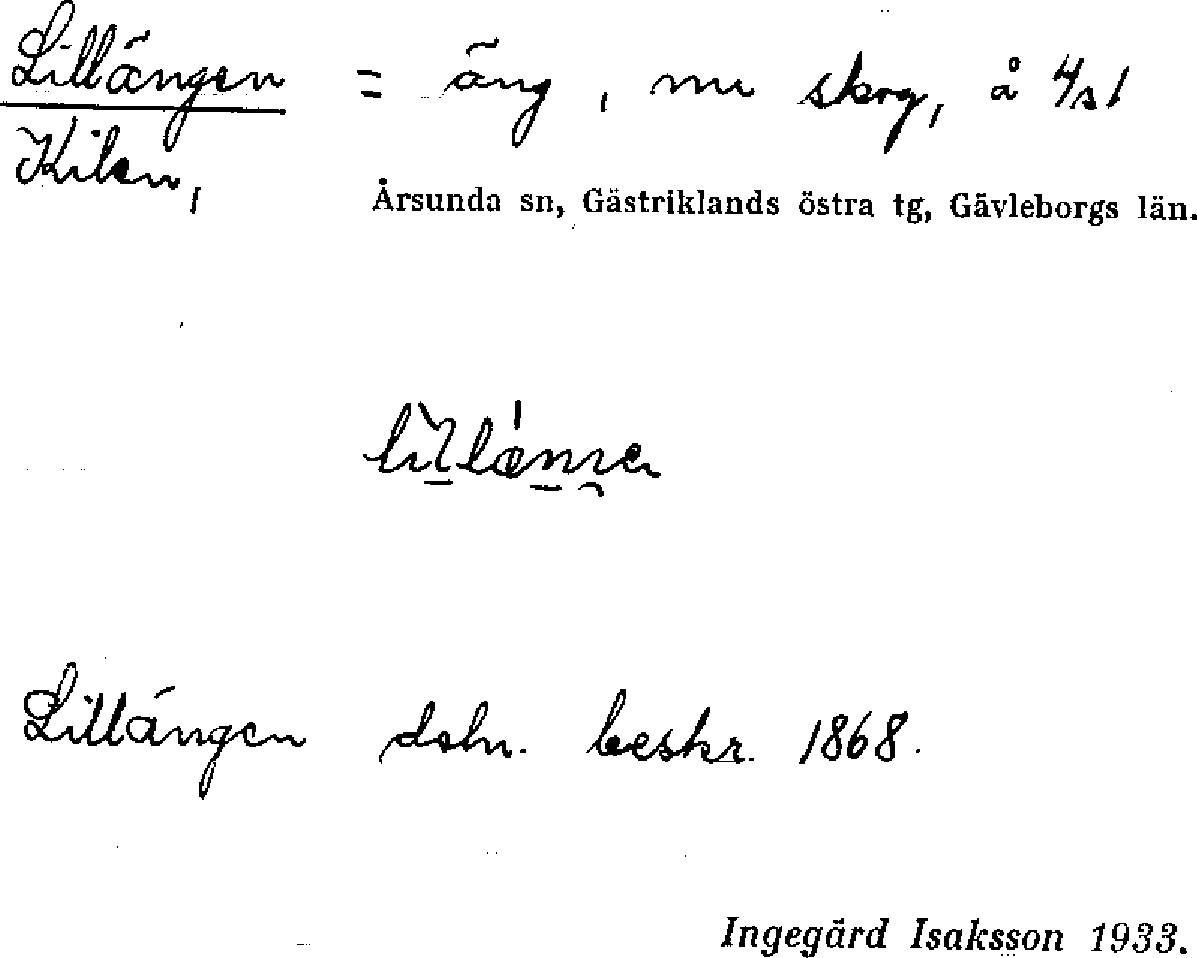 Lillängen = äng, nu skog, å 4/s1
Kilen,
Årsunda sn, Gästriklands östra tg, Gävleborgs län.
Lillängen dsbn. beskr. 1868.
Ingegärd Isaksson 1933.